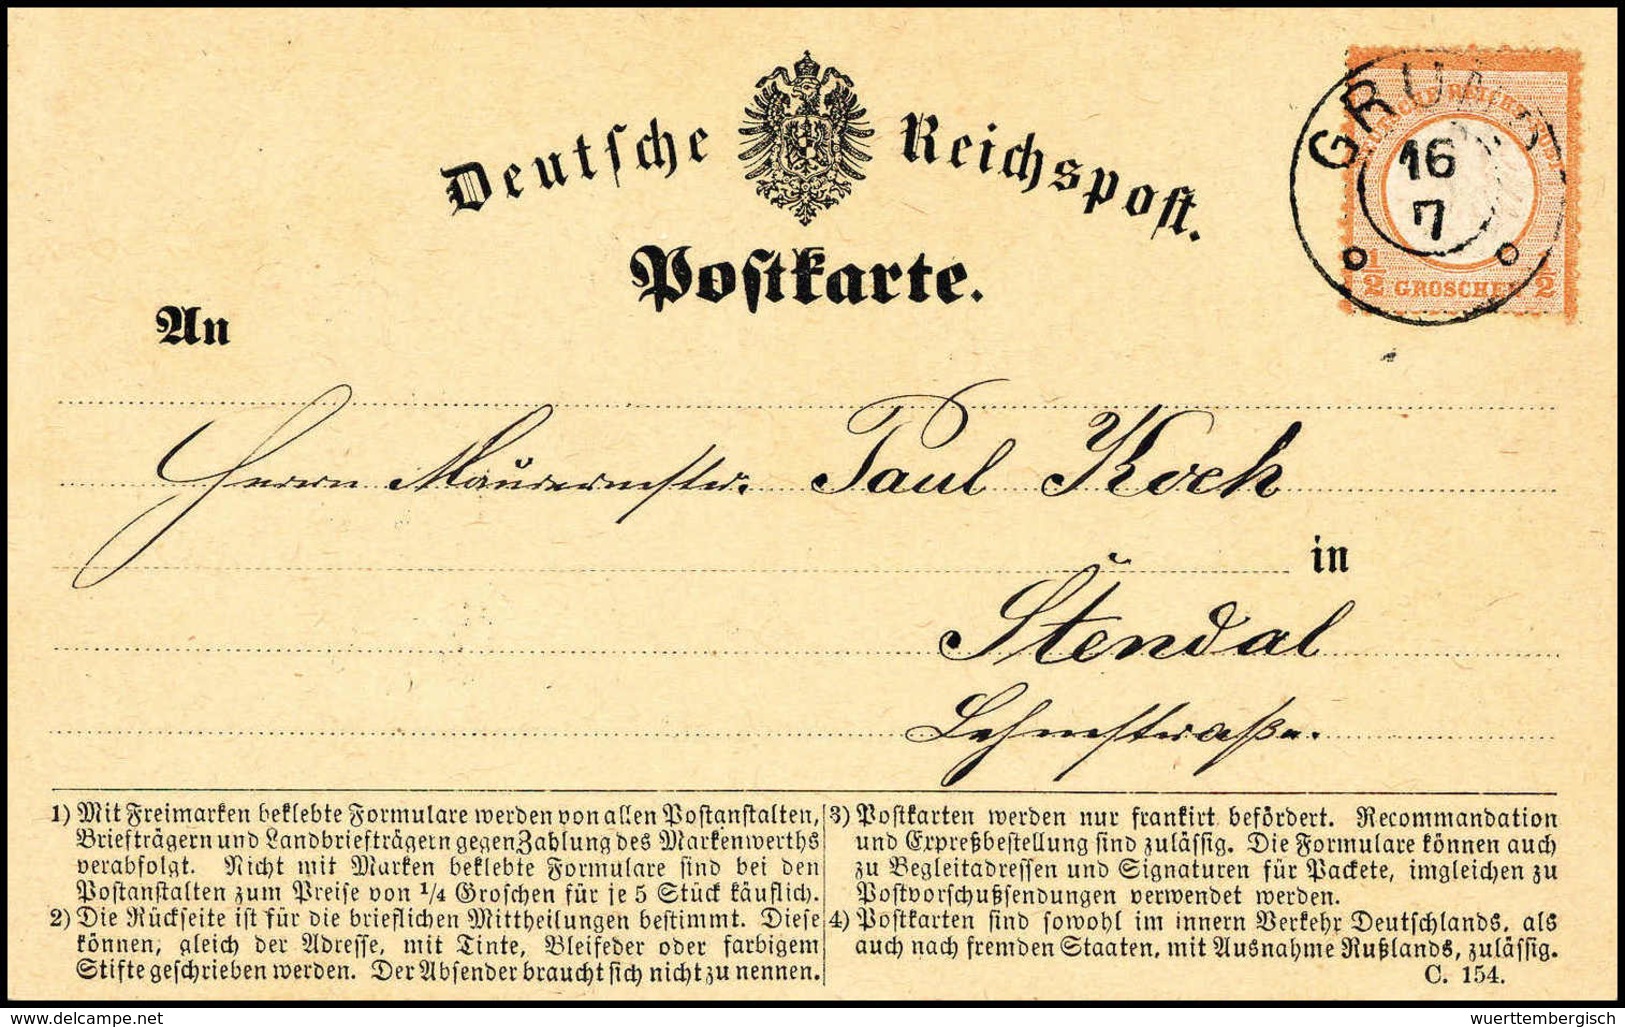 Deutsche Reichspost.
Postkarte.
GRU
16
7
DEUTSCHE REICHS-POST
1/2 GROSCHEN 1/2
An
Herrn Maurermstr. Paul Koch
in
Stendal
1) Mit Freimarken beklebte Formulare werden von allen Postanstalten,
Briefträgern und Landbriefträgern gegen Zahlung des Markenwerths
verabfolgt. Nicht mit Marken beklebte Formulare sind bei den
Postanstalten zum Preise von 1/4 Groschen für je 5 Stück käuflich.
2) Die Rückseite ist für die brieflichen Mittheilungen bestimmt. Diese
können, gleich der Adresse, mit Tinte, Bleifeder oder farbigem
Stifte geschrieben werden. Der Absender braucht sich nicht zu nennen.
3) Postkarten werden nur frankirt befördert. Recommandation
und Expreßbestellung sind zulässig. Die Formulare können auch
zu Begleitadressen und Signaturen für Packete, imgleichen zu
Postvorschußsendungen verwendet werden.
4) Postkarten sind sowohl im innern Verkehr Deutschlands, als
auch nach fremden Staaten, mit Ausnahme Rußlands, zulässig.
C. 154.
delcampe.net
wuerttembergisch